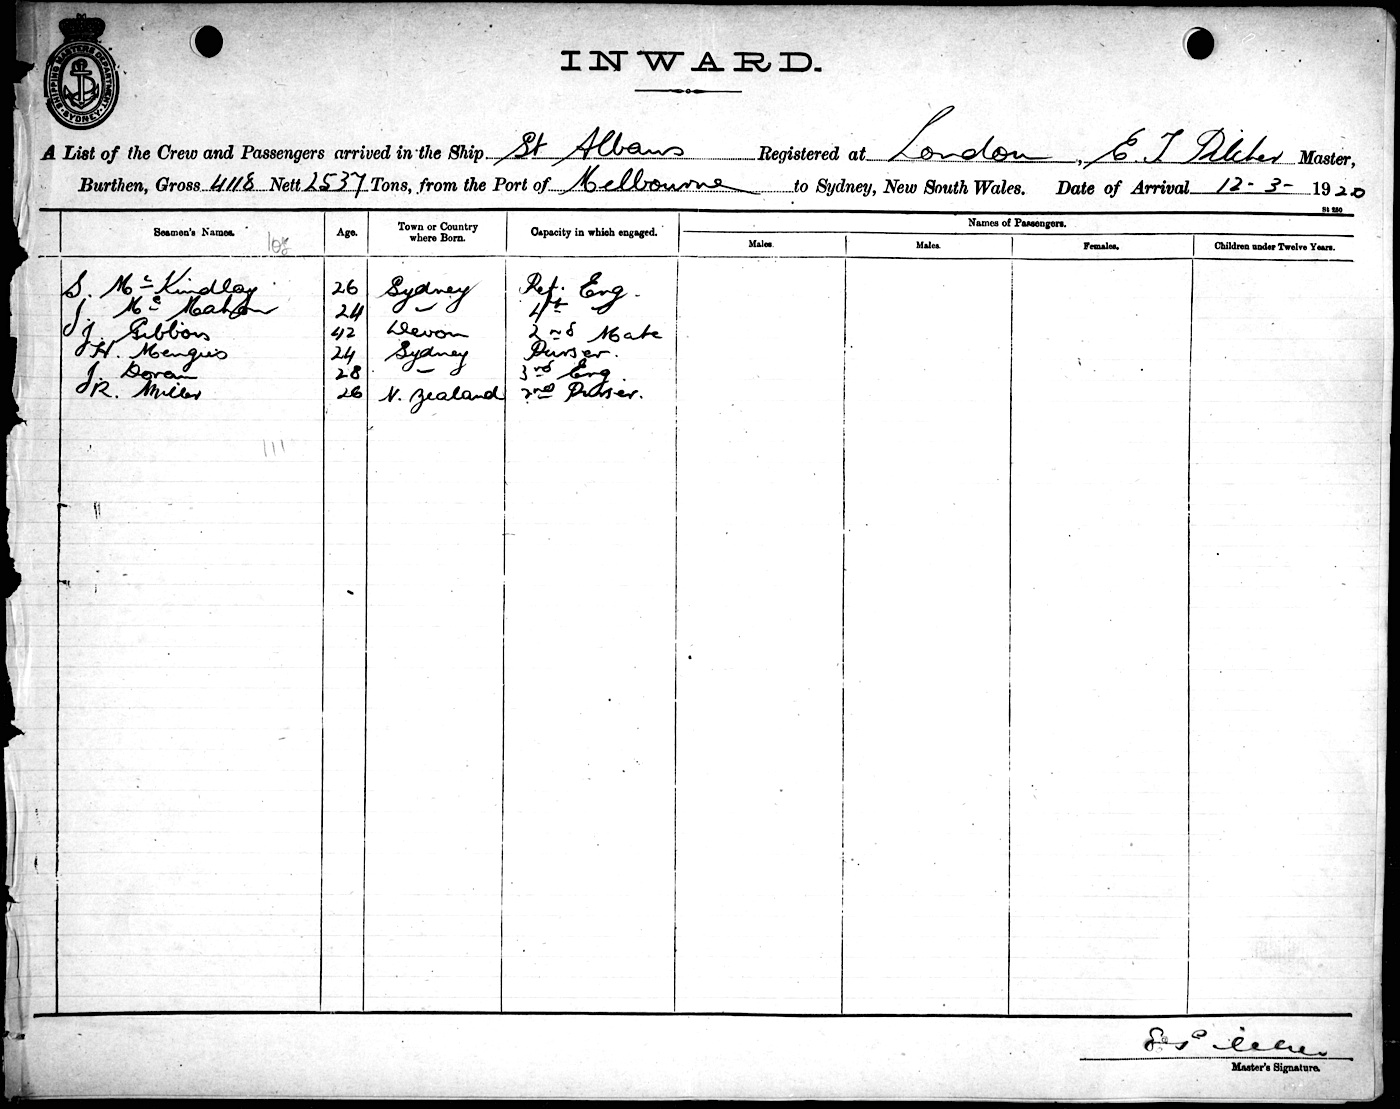 SHIPPING MASTERS DEPARTMENT SYDNEY
INWARD.
A List of the Crew and Passengers arrived in the Ship St Albans Registered at London, E. T Pilcher Master,
Burthen, Gross 4118 Nett 2537 Tons, from the Port of Melbourne to Sydney, New South Wales. Date of Arrival 12-3-1920
St 250
Seamen's Names. Age. Town or Country where Born. Capacity in which engaged. Names of Passengers.
Males. Males. Females. Children under Twelve Years.
108
S. Mc Kindlay 26 Sydney Ref. Eng.
J. Mc Mahon 24 " 4th "
J. Gibbons 42 Devon 2nd Mate
H. Menguis 24 Sydney Purser.
J. Doran 28 " 3rd Eng
R. Miller 26 N. Zealand 2nd Purser.
111
E T Pilcher
Master's Signature.